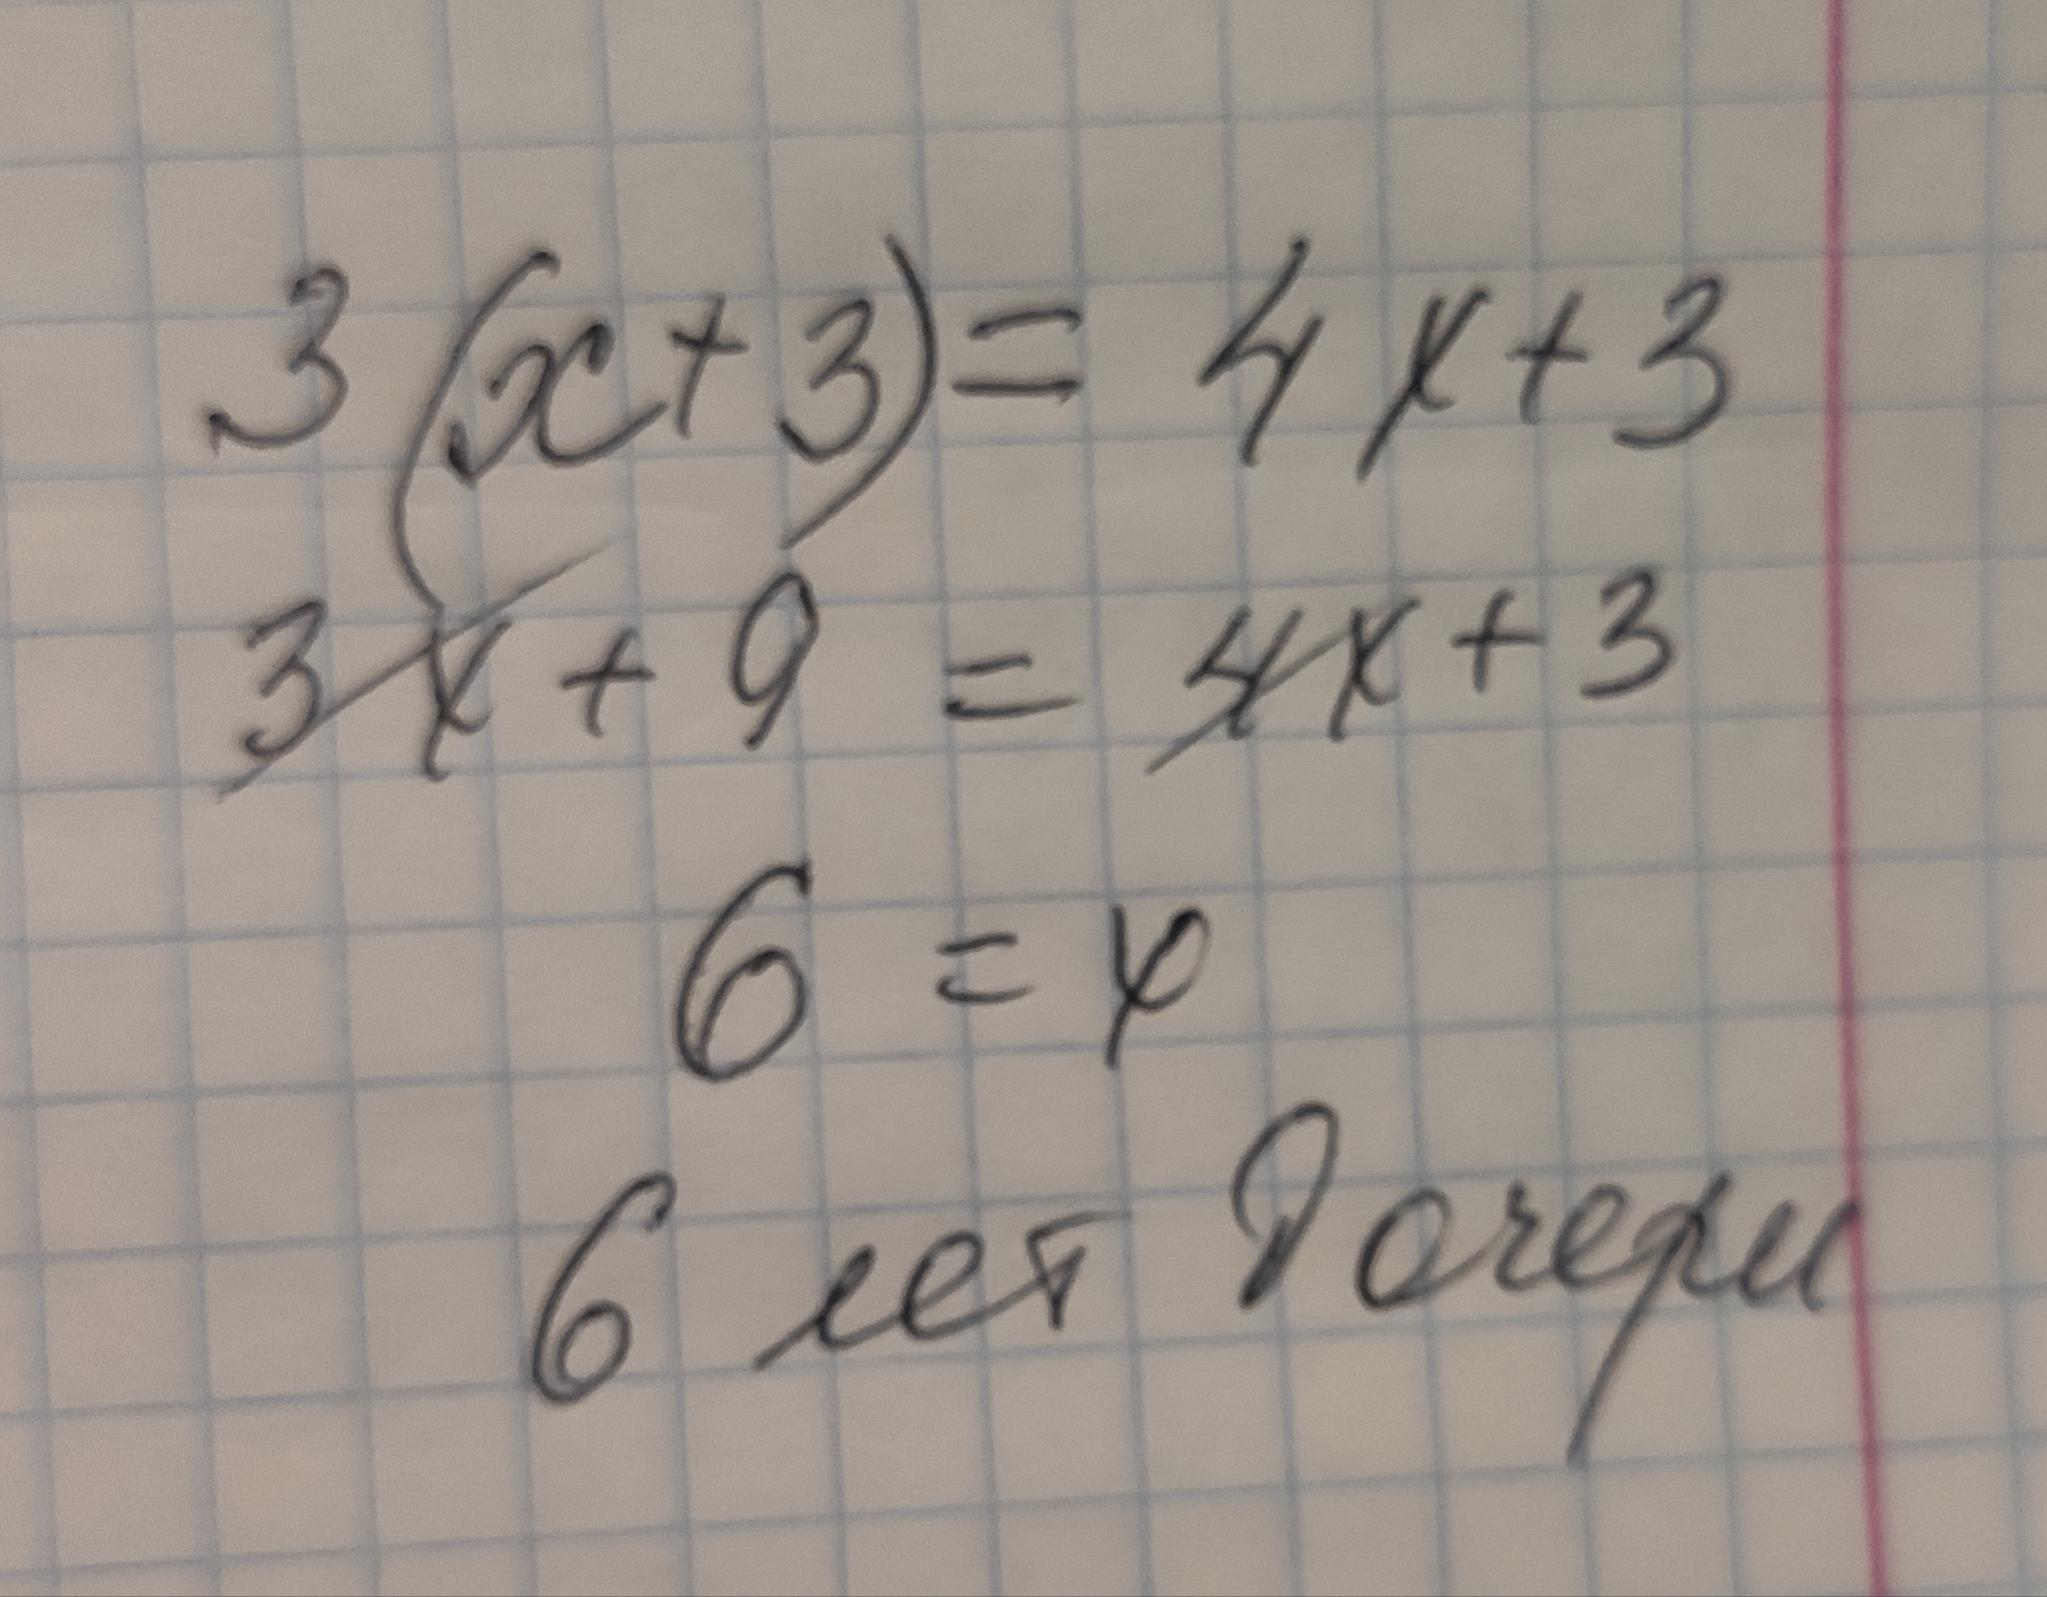 3(x+3)=4x+3
3x+9=4x+3
6=x
6 лет дочери